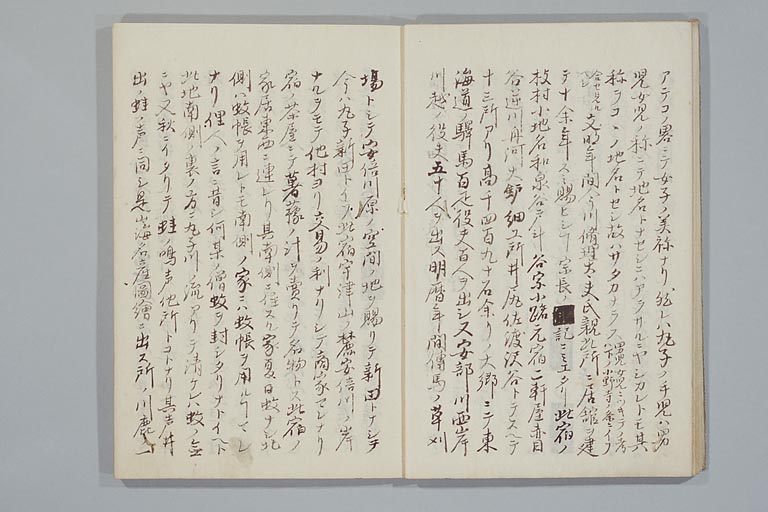 アテコノ畧ニテ女子ノ美称ナリ然レハ丸子ノ手児ハ男
児女児ノ称ニテ地名トナセシニハアラサルニヤシカレトモ其
称ヲコヽノ地名トセシ故ハサタカナラス
文明年間今川修理大夫氏親此所ニ居舘ヲ建
テ十余年スミ賜ヒシ 宗長 記ニミエタリ此宿ノ
枝村小地名和泉谷 谷宗小路元宿二軒屋赤目
谷逆川舟河大鈩細工所井尻佐渡沢谷トテスヘテ
十三所アリ高千四百九十石余リノ大郷ニテ東
海道ノ驛馬百疋役夫百人ヲ出シス安部川西岸
川越ノ役夫五十人ヲ出ス明暦年間傳馬ノ草刈
場トシテ安倍川原ノ空間ノ地ヲ賜リテ新田トナシテ
今ハ丸子新田トイフ此宿宇津山ノ麓安倍川ノ岸
ナルヲモテ他村ヨリ交易ノ利ナリシテ商家マレナリ
宿ノ茶屋ニテ薯蕷ノ汁ヲ賣リテ名物トス此宿ノ
家居東西ニ連レリ其南側ニ住スル家夏日蚊ナシ北
側ハ蚊帳ヲ用レトモ南側ノ家ニハ蚊帳ヲ用ルコマレ
ナリ俚人ノ言ニ昔シ何某ノ僧蚊ヲ封シタリナトイヘト
此地南側ノ裏ノ方ニ丸子川ノ流アリテ清ケレハ蚊ノ
ニヤ又秋ニイタリテ蛙ノ鳴声他所トコトナリ其声井
出ノ蛙ノ声ニ同シ是山海名産圖繪ニ出ス所ノ川鹿